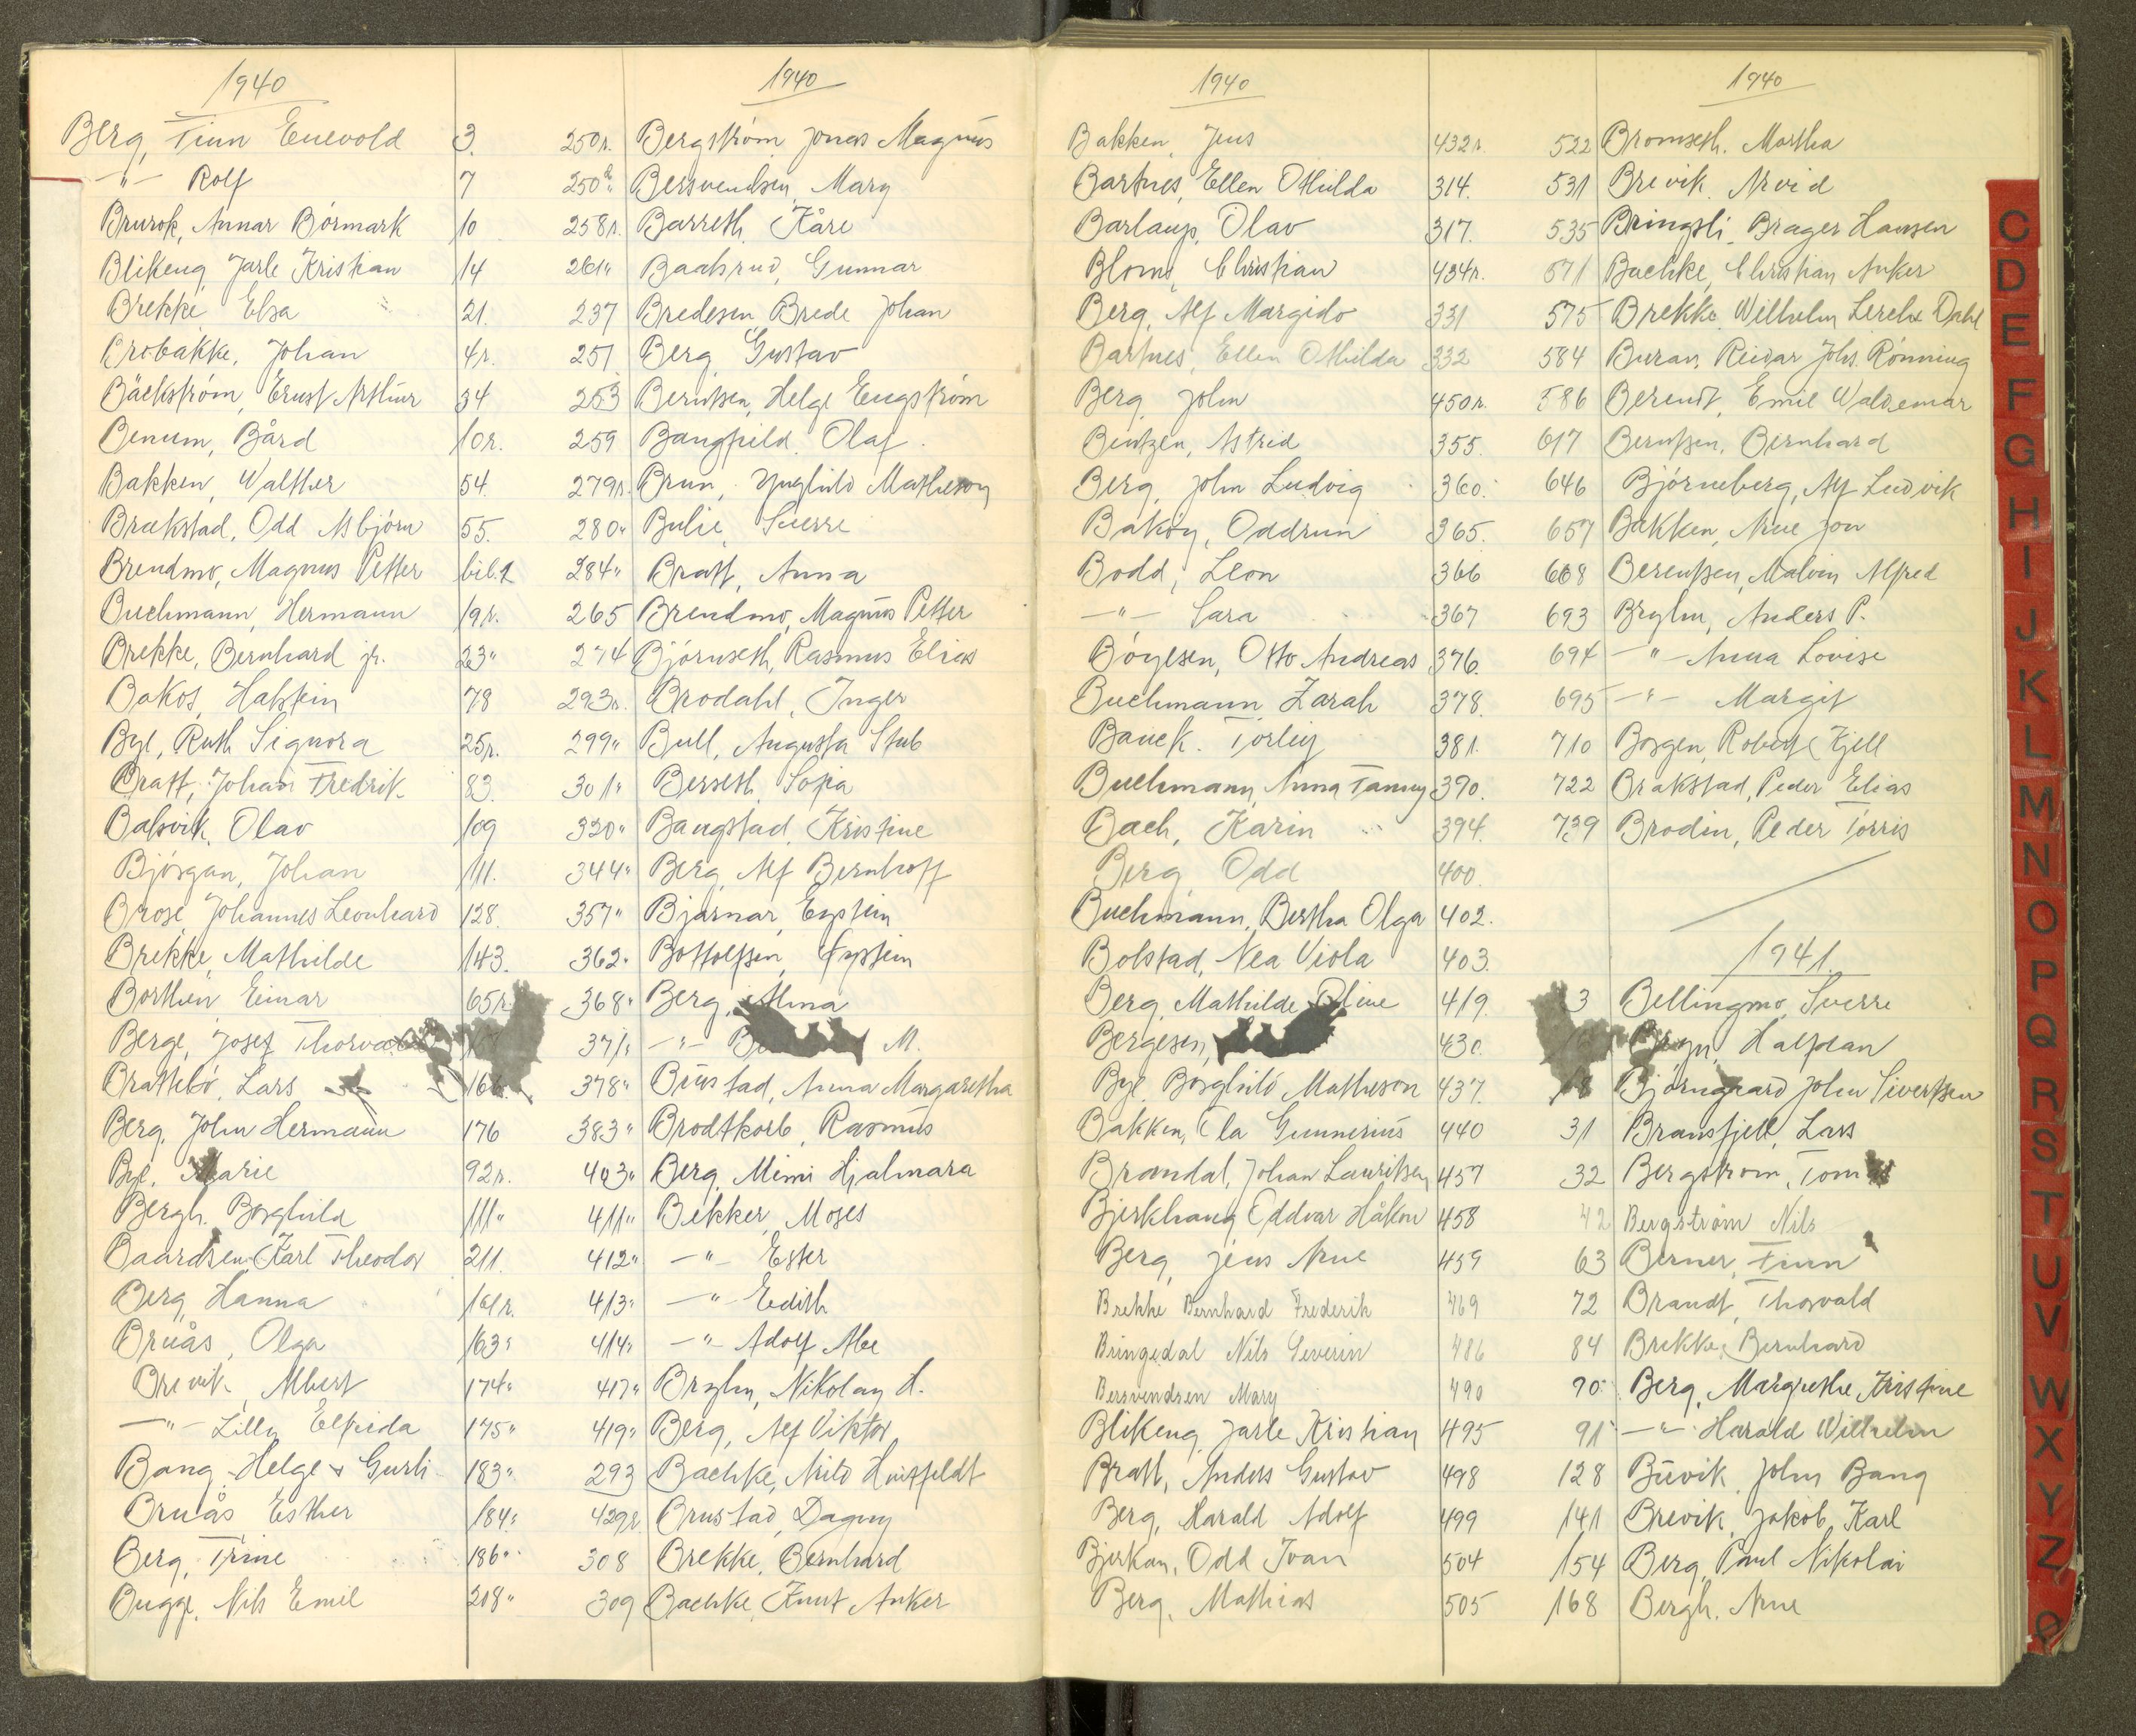 1940
Berg, Finn Enevold 3.
-"- Rolf 7
Brurok, Annar Börmark 10
Blikeng, Jarle Kristian 14
Brekke Elsa 21.
Brobakke, Johan 4r.
Bäckström, Ernst Arthur 34
Benum, Bård 10r.
Bakken, Walther 54.
Brækstad, Odd Asbjörn 55.
Brendmo, Magnus Petter bil.2
Buchmann, Hermann 19r.
Brekke, Bernhard jr. 23"
Bakos, Halstein 78
Bye, Ruth Signora 25r.
Bratt, Johan Fredrik 83.
Balsvik, Olav 109
Bjørgan, Johan 111.
Brose, Johannes Leonhard 128.
Brekke, Mathilde 143.
Borthen Einar 65r.
Berge, Josef
Brattebö, Lars 166.
Berg, John Hermann 176
Bye, Marie 92r.
Bergh. Borghild 111"
Baardsen, Karl Theodor 211.
Berg, Hanna 161r.
Bruås, Olga 163"
Brevik, Albert 174"
-"- Lilly Elfrida 175"
Bang, Helge & Gurli 183"
Bruås Esther 184"
Berg, Trine 186"
Bugge, Nils Emil 208"
1940
250r. Bergström, Jonas Magnus
250b" Bersvendsen, Mary
258r. Barreth, Kåre
261" Baahrud, Gunnar
237 Bredesen Brede Johan
251 Berg, Gustav
253 Berntsen, Helge Engström
259 Bangfield. Olaf.
279r. Brun, Ynghild Matheson
280" Bulie, Sverre
284" Bratt, Anna
265 Brendmo, Magnus Petter
274 Björnseth, Rasmus Elias
293r. Brodahl, Inger
299" Bull, Augusta Stub
301" Berseth, Sofia
320" Bangstad, Kristine
344" Berg, Alf Bernhoff
357" Bjarnar, Eystein
362" Bottolfsen, Eystein
368" Berg, Alma
371" -"- M.
378" Buustad, Anna Margaretha
383" Brodtkorb, Rasmus
403" Berg, Mimi Hjalmara
411" Bekker, Moses
412" -"- Ester
413" -"- Edith
414" -"- Adolf Abe
417" Bryhn, Nikolay H.
419" Berg, Alf Viktor
293 Bachke, Arild Huitfeldt
429r Brustad, Dagny
308 Brekke, Bernhard
309 Bachke, Knut Anker
1940
Bakken, Jens 432r.
Bartnes, Ellen Othilda 314.
Barlaup, Olav 317.
Blom, Christian 434r.
Berg, Alf Margido 331
Bartnes, Ellen Othilda 332
Berg, John 450r.
Bentzen, Astrid 355.
Berg, John Ludvig 360.
Bakøy, Oddrun 365.
Bodd, Leon 366
-"- Sara 367
Böyesen, Otto Andreas 376.
Buchmann Zarah 378.
Bauck. Torleiv 381.
Buchmann, Anna Fanny 390.
Bach, Karin 394.
Berg, Odd 400.
Buchmann, Bertha Olga 402.
Bolstad, Nea Viola 403.
Berg, Mathilde Oline 419.
Bergesen, 430.
Bye, Borghild Matheson 437.
Bakken, Ola Gunnerius 440
Brandal, Johan Lauritsen 457
Bjerkhaug Oddvar Håkon 458
Berg, Jens Arne 459
Brekke Bernhard Frederik 469
Bringedal Nils Severin 486
Bersvendsen Mary 490
Blikeng, Jarle Kristian 495
Bratt, Anders Gustav 498
Berg, Harald Adolf 499
Bjerkan, Odd Ivan 504
Berg, Mathias 505
1940
522 Bromseth. Martha
531 Brevik. Arvid
535 Bringsli, Brager Hansen
571 Bachke, Christian Anker
575 Brekke, Wilhelm Lerche Dahl
584 Buran, Reidar Johs. Rønning
586 Berendt, Emil Waldemar
617 Berntsen, Bernhard
646 Bjørneberg, Alf Ludvik
657 Bakken, Arne Jon
668 Berentsen, Malvin Alfred
693 Bryhn, Anders P.
694 -"- Anna Lovise
695 -"- Margit
710 Borgen, Robert Kjell
722 Brakstad, Peder Elias
739 Brodin, Peder Torris
1941.
3 Bellingmo, Sverre
Halfdan
18 Björngaard John Sivertsen
31 Bransfjell, Lars
32 Bergström, Tomas
42 Bergström Nils
63 Berner, Finn
72 Brandt, Thorvald
84 Brekke, Bernhard
90. Berg, Margrethe Kristine
91 -"- Harald Wilhelm
128 Buvik, John Bang
141 Brevik, Jakob, Karl
154 Berg, Paul Nikolai
168 Bergh, Arne
C
D
E
F
G
H
I
J
K
L
M
N
O
P
Q
R
S
T
U
V
W
X
Y
Z
Ø